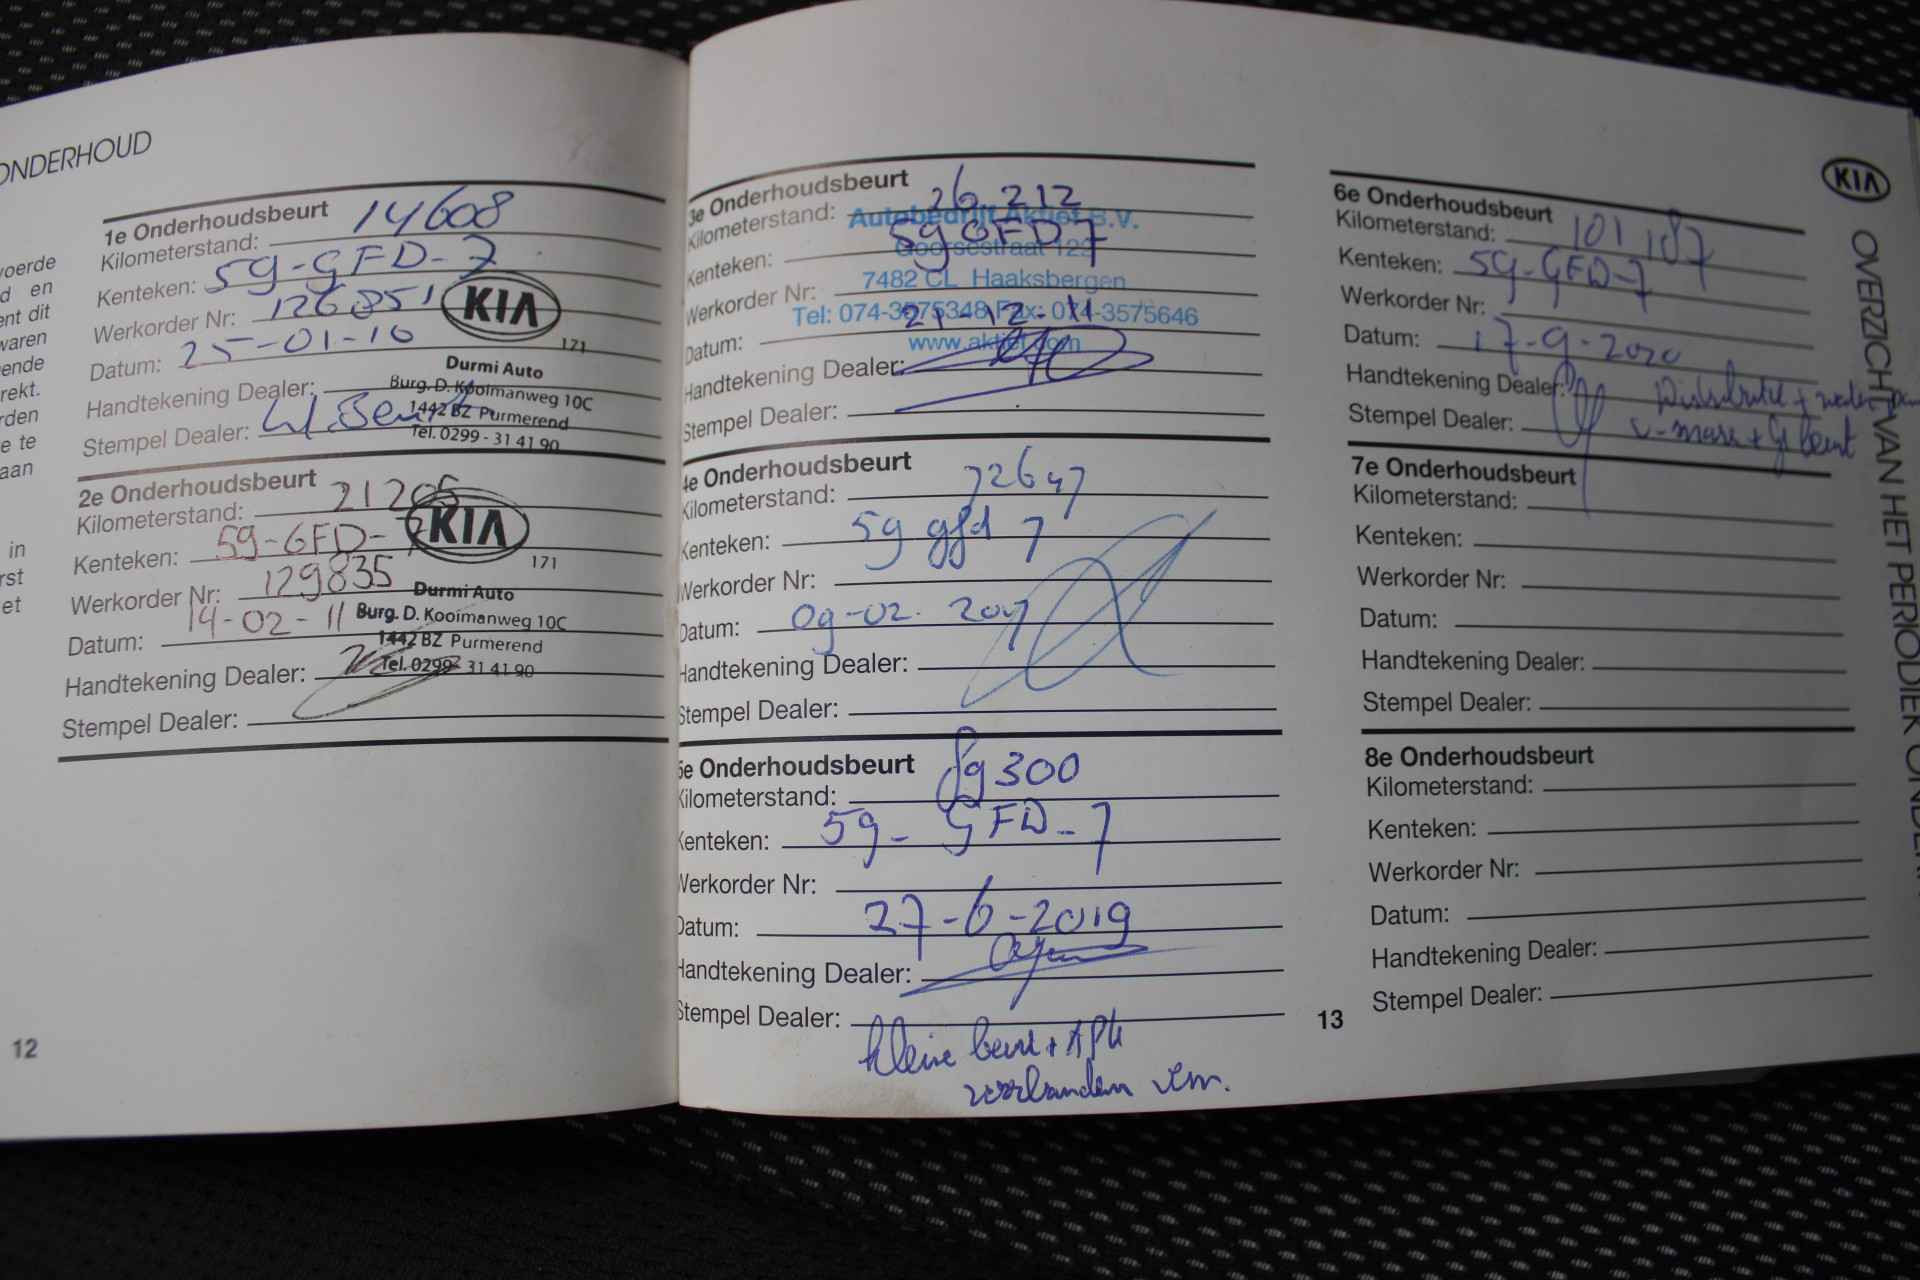 ONDERHOUD
voerde
d en
ent dit
waren
ende
rekt.
rden
e te
aan
in
rst
et
1e Onderhoudsbeurt
Kilometerstand: 14608
Kenteken: 59-GFD-7
Werkorder Nr: 126851
Datum: 25-01-10
Handtekening Dealer:
Stempel Dealer:
KIA
171
Durmi Auto
Burg. D. Kooimanweg 10C
1442 BZ Purmerend
Tel. 0299 - 31 41 90
2e Onderhoudsbeurt
Kilometerstand: 21205
Kenteken: 59-GFD-7
Werkorder Nr: 129835
Datum: 14-02-11
Handtekening Dealer:
Stempel Dealer:
KIA
171
Durmi Auto
Burg. D. Kooimanweg 10C
1442 BZ Purmerend
Tel. 0299 - 31 41 90
12
3e Onderhoudsbeurt
Kilometerstand: 26 212
Kenteken: 59 GFD 7
Werkorder Nr:
Datum: 21-12-11
Handtekening Dealer:
Stempel Dealer:
Autobedrijf Aktief B.V.
Goorsestraat 122
7482 CL Haaksbergen
Tel: 074-3575348 Fax: 074-3575646
www.aktief.com
4e Onderhoudsbeurt
Kilometerstand: 72647
Kenteken: 59 gfd 7
Werkorder Nr:
Datum: 09-02-2017
Handtekening Dealer:
Stempel Dealer:
5e Onderhoudsbeurt
Kilometerstand: 89300
Kenteken: 59-GFD-7
Werkorder Nr:
Datum: 27-6-2019
Handtekening Dealer:
Stempel Dealer:
kleine beurt + APK
voorbanden vern.
13
6e Onderhoudsbeurt
Kilometerstand: 101 187
Kenteken: 59-GFD-7
Werkorder Nr:
Datum: 17-9-2020
Handtekening Dealer: Distributie +
Stempel Dealer: beurt
7e Onderhoudsbeurt
Kilometerstand:
Kenteken:
Werkorder Nr:
Datum:
Handtekening Dealer:
Stempel Dealer:
8e Onderhoudsbeurt
Kilometerstand:
Kenteken:
Werkorder Nr:
Datum:
Handtekening Dealer:
Stempel Dealer:
KIA
OVERZICHT VAN HET PERIODIEK ONDER